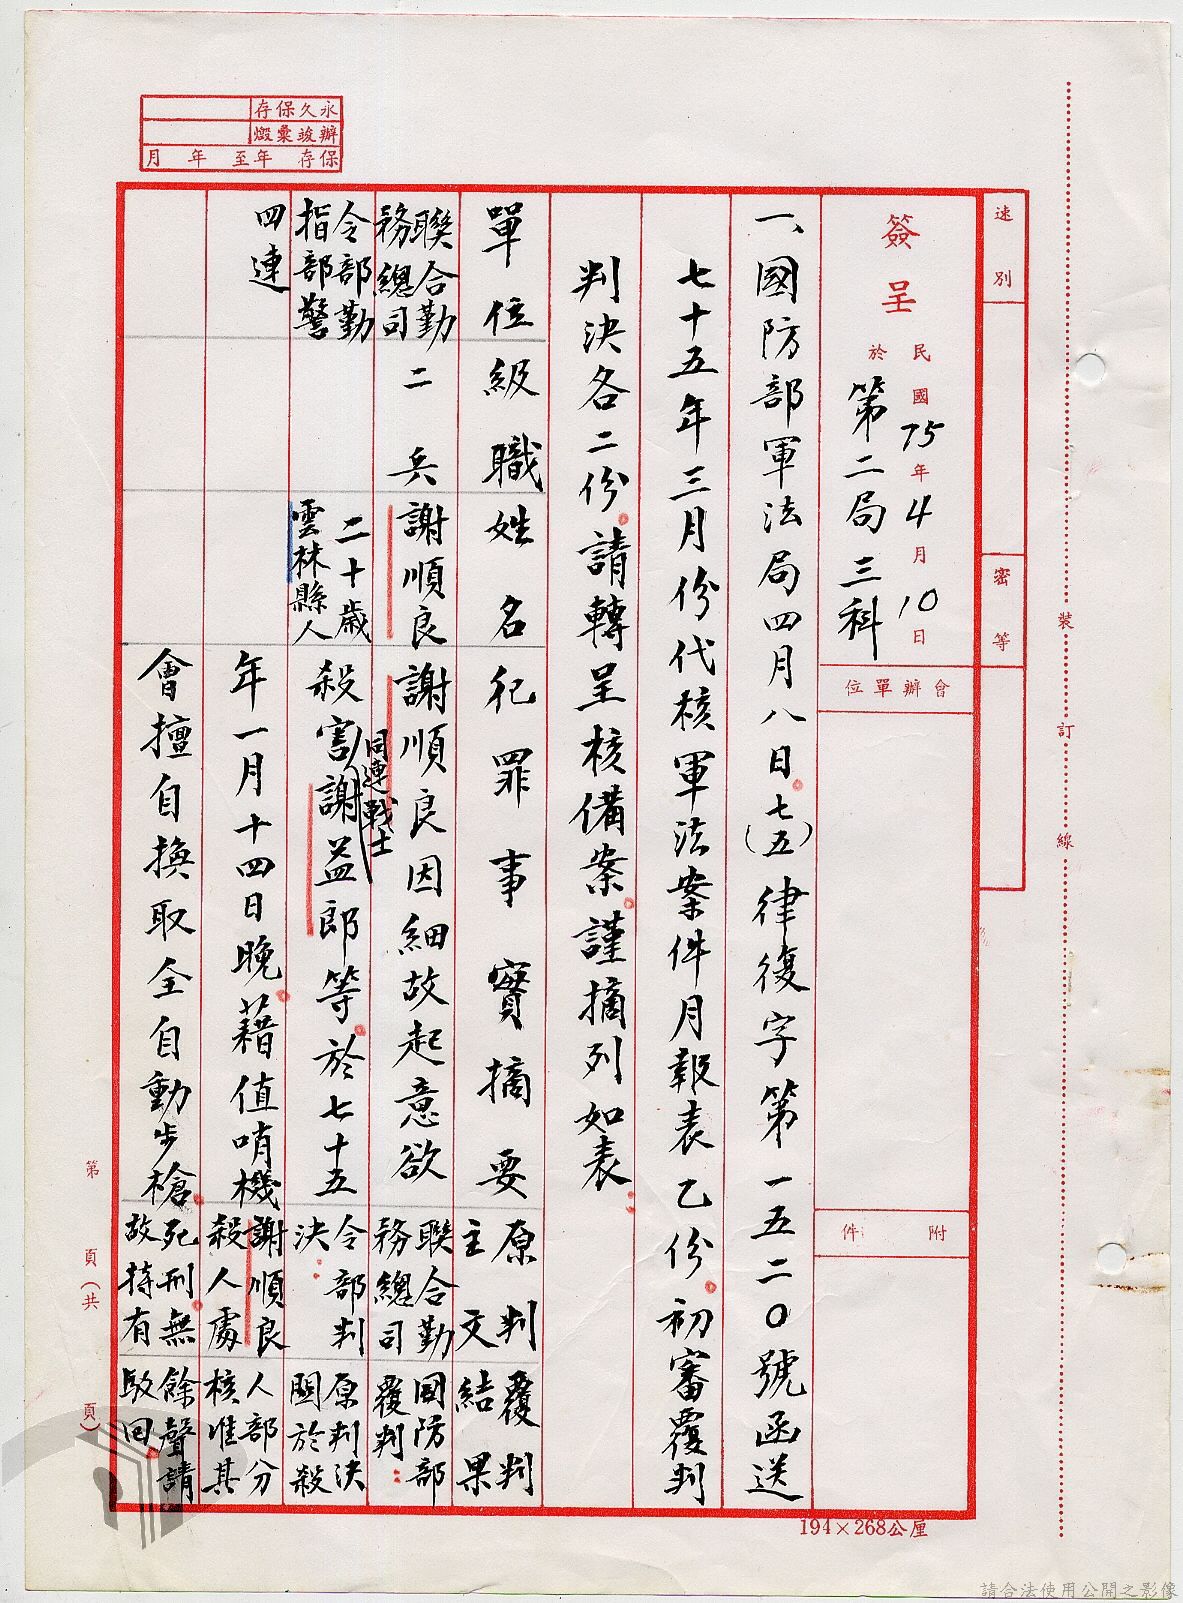 永久保存
辦竣彙燬
保存 年至 年 月
速別
密等
簽呈 民國75年4月10日
於第二局三科
會辦單位
附件
一、國防部軍法局四月八日。(七五)律復字第一五二〇號函送
七十五年三月份代核軍法案件月報表乙份。初審覆判
判決各二份。請轉呈核備案。謹摘列如表：
單位
級職
姓名
犯罪事實摘要
原判主文
覆判結果
聯合勤務總司令部勤指部警四連
二兵
謝順良
二十歲
雲林縣人
謝順良因細故起意欲
殺害同連戰士謝益郎等。於七十五
年一月十四日晚。藉值哨機
會擅自換取全自動步槍。
聯合勤務總司令部判決：
謝順良殺人處死刑。無故持有
國防部覆判：
原判決關於殺人部分核准其餘聲請駁回。
裝訂線
第 頁(共 頁)
194×268公厘
請合法使用公開之影像